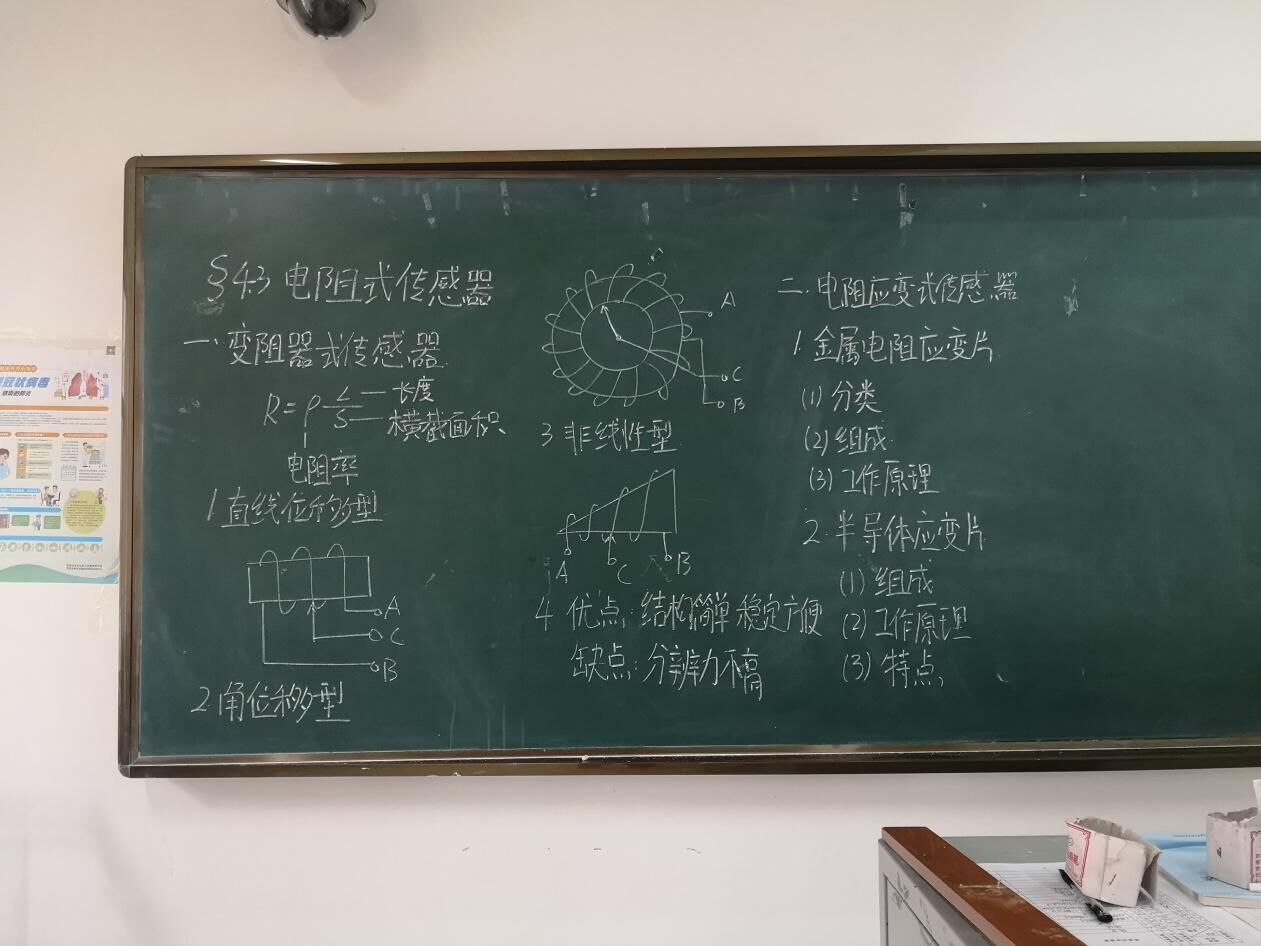 §4.3 电阻式传感器
一、变阻器式传感器
R=ρ L/S 长度
横截面积
电阻率
1.直线位移型
A
C
B
2.角位移型
A
C
B
3.非线性型
A
C
B
4.优点:结构简单 稳定方便
缺点:分辨力不高
二.电阻应变式传感器
1.金属电阻应变片
(1)分类
(2)组成
(3)工作原理
2.半导体应变片
(1)组成
(2)工作原理
(3)特点
冠状病毒